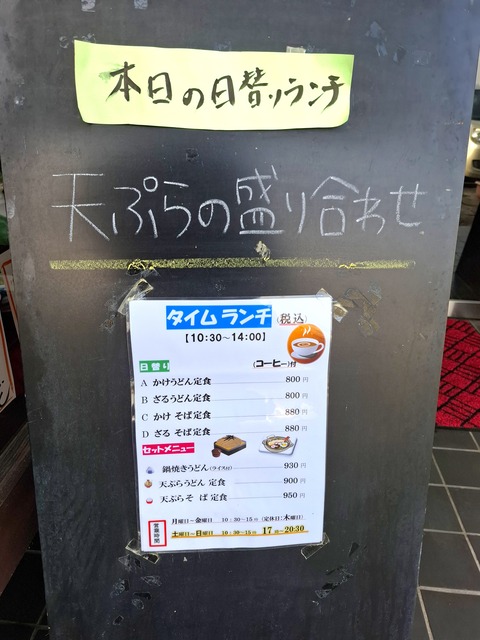 本日の日替りランチ
天ぷらの盛り合わせ
タイムランチ(税込)
【10:30~14:00】
日替り (コーヒー)付
A かけうどん定食 800円
B ざるうどん定食 800円
C かけ そば定食 880円
D ざる そば定食 880円
セットメニュー
鍋焼きうどん(ライス付) 930円
天ぷらうどん 定食 900円
天ぷらそ ば 定食 950円
営業時間
月曜日~金曜日 10:30~15時 (定休日:木曜日)
土曜日~日曜日 10:30~15時 17時~20:30